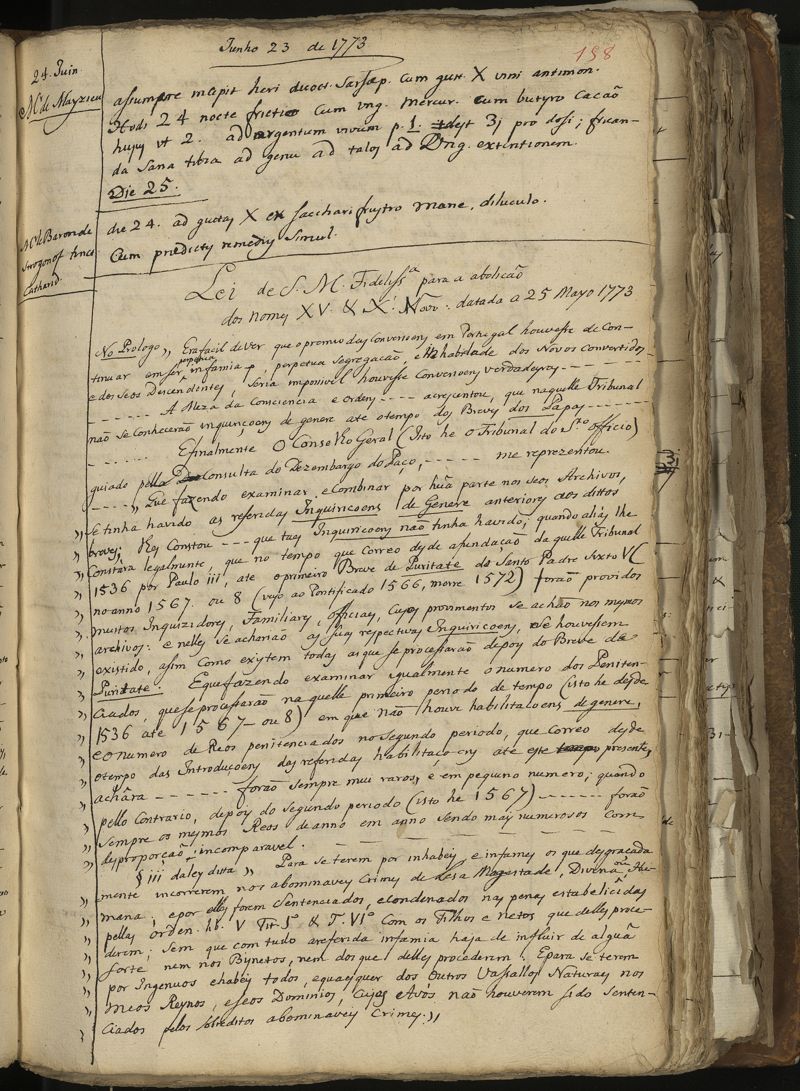 Junho 23 de 1773
198
24. Juin
Mr. de Mayzieu
assumpore incepit heri duoct. Sarsap. Cum gutt. X vini antimon.
Hodi 24 nocte frictio Cum vng. Mercur. cum butyro Cacáo
hujus vt 2. ad argentum vivum p. 1. idest 3j pro dosi; frican-
da sana tibia ad genu ad talos ad Dnig. extintionem.
Die 25.
Mr. le Baron de
Strogonof tinct.
Catharid.
die 24. ad guttas X ex sacchari frustro mane, diluculo.
Cum praedictis remediis Simul.
Lei de S. M. Fidelissa. para a abolicão
dos nomes XV. & X. Novo. datada a 25 Mayo 1773
No Prologo,, Era facil de Ver que o premio das Conversoens em Portugal houvesse de Con-
tinuar em ser infamia perpetua, perpetua Segregacão, e Inhabilidade dos Novos Convertidos
e dos seos Descendentes, Seria imposivel houvesse Conversoens Verdadeyras - - -
- - - - - - A Meza da Consciencia e Ordens - - - - acresentou, que naquelle Tribunal
não se Conhecerão inquiriçoens de genere até o tempo dos Breves dos Papas - - - - -
- - - - - - E finalmente O Conselho Geral (Isto he o Tribunal do Sto. officio)
guiado pella Consulta do Dezembargo do Paço, - - - - - me reprezentou.
- - - - ,, Que fazendo examinar e Combinar por hũa parte nos seos Archivos,
,, Se tinha havido as referidas Inquiricoens de Genere anteriores aos dittos
,, breves; Hey Constou - - - que taes Inquiricoens não tinha havido; quando aliás lhe
,, Constára legalmente, que no tempo que Correo desde a fundação da quelle Tribunal
,, 1536 por Paulo iii, ate o primeiro Breve de Puritate do Santo Padre Sixto V (
,, no anno 1567. ou 8 (veyo ao Pontificado 1566, morre 1572) forão providos
,, muitos Inquizidores, Familiares, officiaes, Cujos provimentos se achão nos mesmos
,, archivos: e nelles se acharião as suas respectivas Inquiricoens, se houvessem
,, existido, asim Como existem todas as que se processarão depoys do Breve de
,, Puritate. E que fazendo examinar igualmente o numero dos Peniten-
,, ciados, que se processarão na quelle primeiro periodo de tempo (isto he desde
,, 1536 até 1567 - ou 8) em que não houve habilitacoens de genere,
,, e o numero de Reos penitenciados no segundo periodo, que Correo desde
,, o tempo das Introducoens das referidas habilitaco-ens até este presente,
,, achára - - - - - - forão sempre mui raros, e em pequeno numero; quando
,, pello Contrario, depoys do segundo periodo (isto he 1567) - - - - - - - forão
,, Sempre os mesmos Reos de anno em anno sendo mays numerosos com
,, desproporção incomparavel.
,, § iii da ley dita ,, Para se terem por inhabeys e infames os que desgracada
,, mente incorrerem nos abominaveys Crimes de Lesa Magestade, Divina ou Hu-
,, mana, e por elles forem Sentenciados, e condenados nas penas estabelicidas
,, pellas Orden. lib. V Tit. Iº & T. VIº Com os Filhos e netos que delles proce-
,, derem; Sem que com tudo a referida infamia haja de influir de algũa
,, Sorte nem nos Bisnetos, nem dos que delles procederem. E para se terem
,, por Ingenuos e habeis todos, e quaesquer dos Outros Vassallos Naturaes nos
,, meos Reynos, e seos Dominios, Cujos Avós não houverem sido Senten-
,, Ciados pelos sobreditos abominaveys Crimes.,,